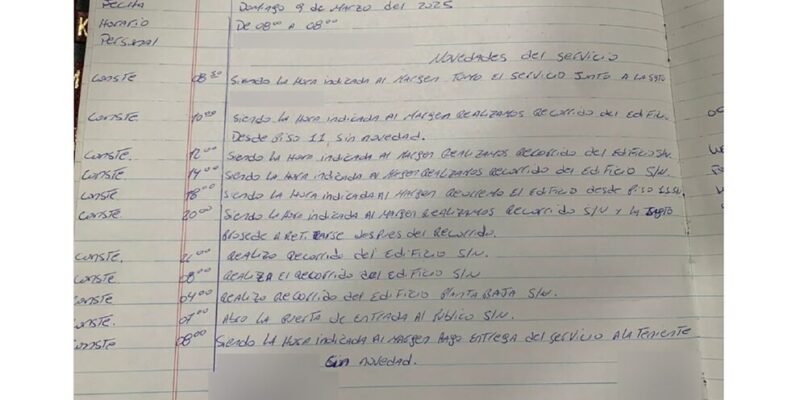 Fecha Domingo 9 de Marzo del 2025
Horario De 08⁰⁰ A 08⁰⁰
Personal
Novedades del servicio
Conste 08³⁰ Siendo La Hora indicada Al Margen Tomo El Servicio Junto A La Sgto
Conste 10⁰⁰ Siendo La Hora indicada Al Margen Realizamos Recorrido del Edificio.
Desde Piso 11, Sin novedad.
Conste. 12⁰⁰ Siendo La Hora indicada Al Margen Realizamos Recorrido del Edificio S/N.
Conste 14⁰⁰ Siendo La Hora indicada Al Margen Realizamos Recorrido del Edificio S/N.
Conste 18⁰⁰ Siendo La Hora indicada Al Margen Recorremo El Edificio desde Piso 11 S/N
Conste 20⁰⁰ Siendo La Hora indicada Al Margen Realizamos Recorrido S/N y La Sgto
Prosede A Retirarse despues del Recorrido.
Conste. Realizo Recorrido del Edificio S/N.
Conste. 08⁰⁰ Realiza El Recorrido del Edificio S/N.
Conste 04⁰⁰ Realizo Recorrido del Edificio Planta Baja S/N.
Conste. 07⁰⁰ Abro La Puerta de Entrada Al Publico S/N.
Conste 08⁰⁰ Siendo La Hora indicada Al Margen Hago Entrega del Servicio A La Teniente
Sin novedad.